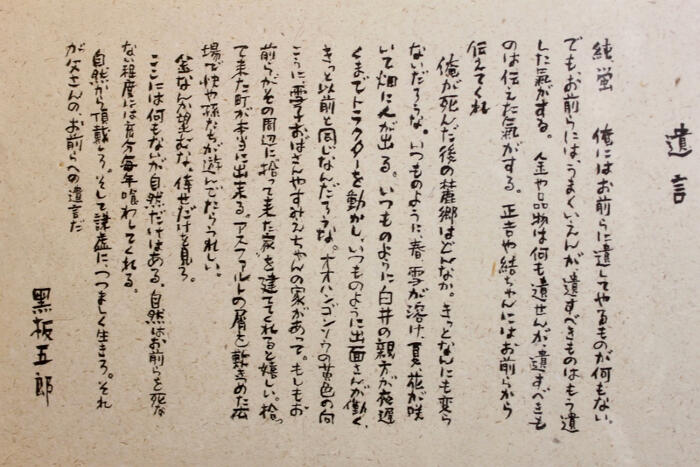 遺言
純、蛍 俺にはお前らに遺してやるものが何もない。
でも、お前らには、うまくいえんが遺すべきものはもう遺
した氣がする。金や品物は何も遺せんが、遺すべきも
のは伝えた氣がする。正吉や結ちゃんにはお前らから
伝えてくれ
俺が死んだ後の麓郷はどんなか。きっとなんにも変ら
ないだろうな。いつものように、春、雪が溶け、夏、花が咲
いて畑に人が出る。いつものように白井の親方が夜遅
くまでトラクターを動かし、いつものように出面さんが働く。
きっと以前と同じなんだろうな。オオハンゴンソウの黄色の向
こうに、雪子おばさんやすみえちゃんの家があって。もしもお
前らがその周辺に拾って来た家を建ててくれると嬉しい。拾っ
て来た町が本当に出来る。アスファルトの屑を敷きつめた広
場で快や孫たちが遊んでたらうれしい。
金なんか望むな。倖せだけを見ろ。
ここには何もないが自然だけはある。自然はお前らを死な
ない程度には充分毎年喰わしてくれる。
自然から頂戴しろ。そして謙虚に、つつましく生きろ。それ
が父さんの、お前らへの遺言だ
黒板五郎